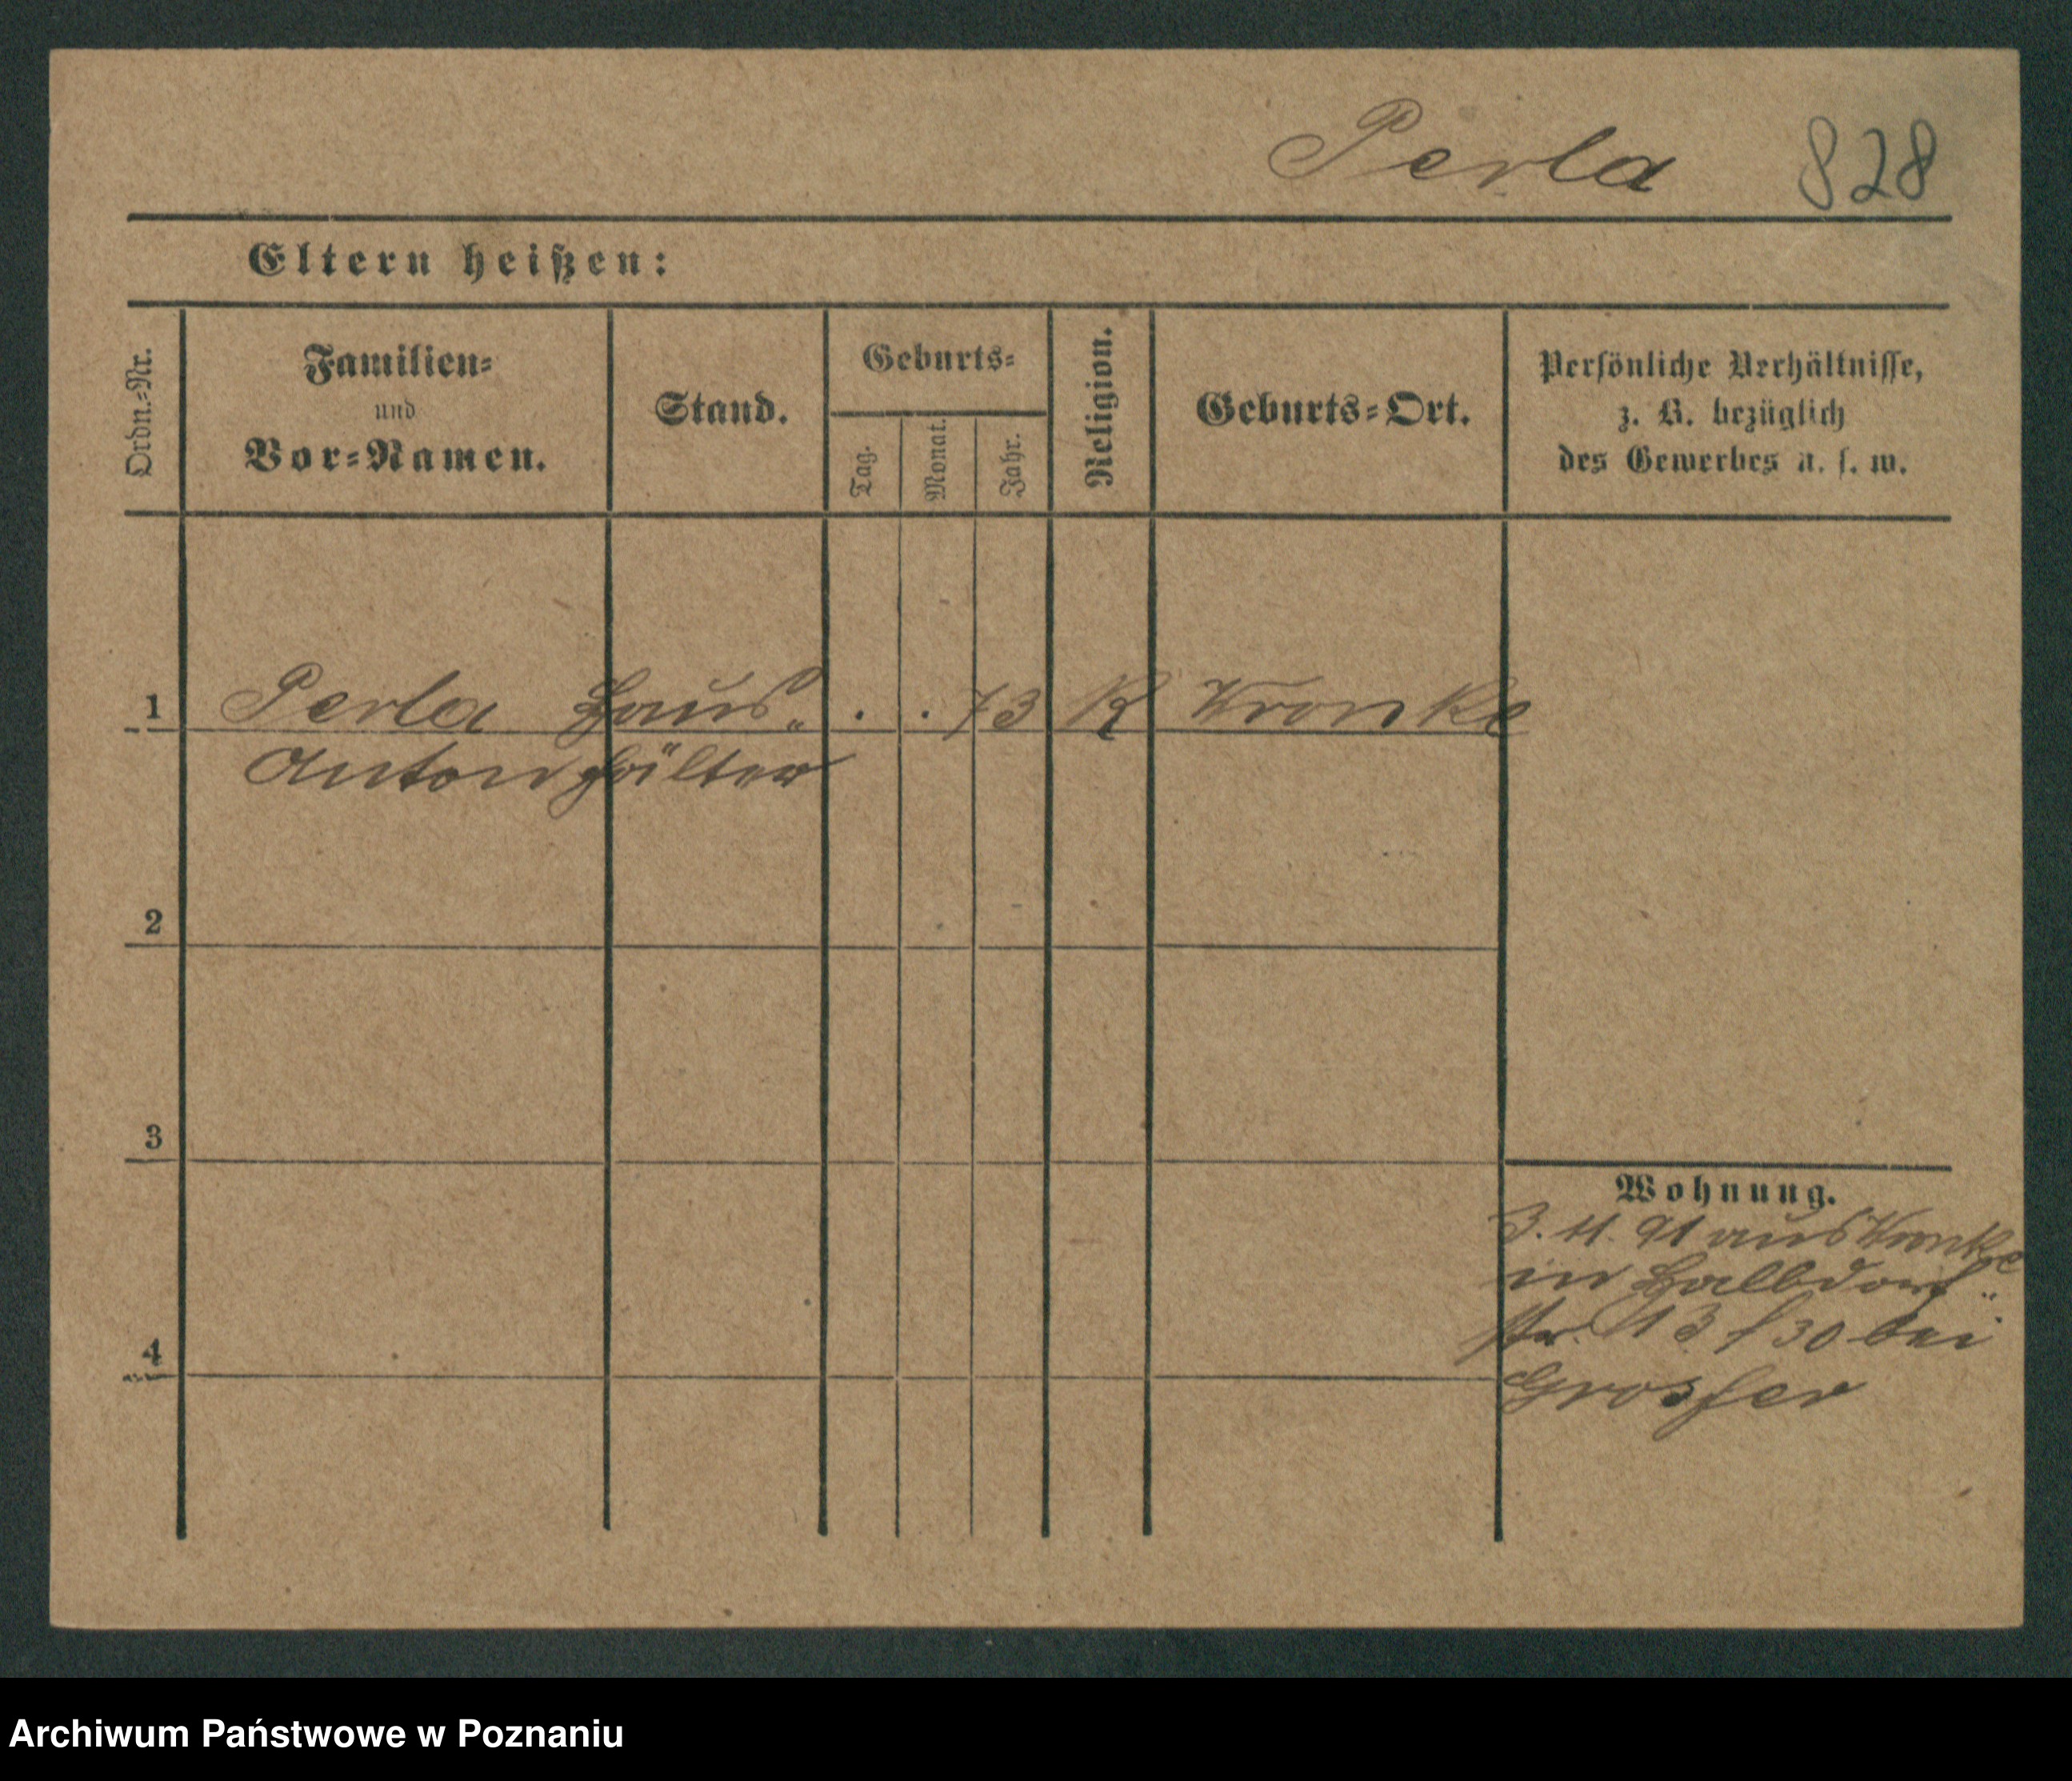 Perla 828
Eltern heißen:
Ordn.=Nr.
Familien=
und
Vor=Namen.
Stand.
Geburts=
Tag.
Monat.
Jahr.
Religion.
Geburts=Ort.
Persönliche Verhältnisse,
z. B. bezüglich
des Gewerbes u. s. w.
1 Perla Haus„ . . 73 K Wronke
Anton hälter
2
3
4
Wohnung.
3. 11. 91 aus Wronke
in Halbdorf„
str. 13 f 30 bei
Grosser
Archiwum Państwowe w Poznaniu